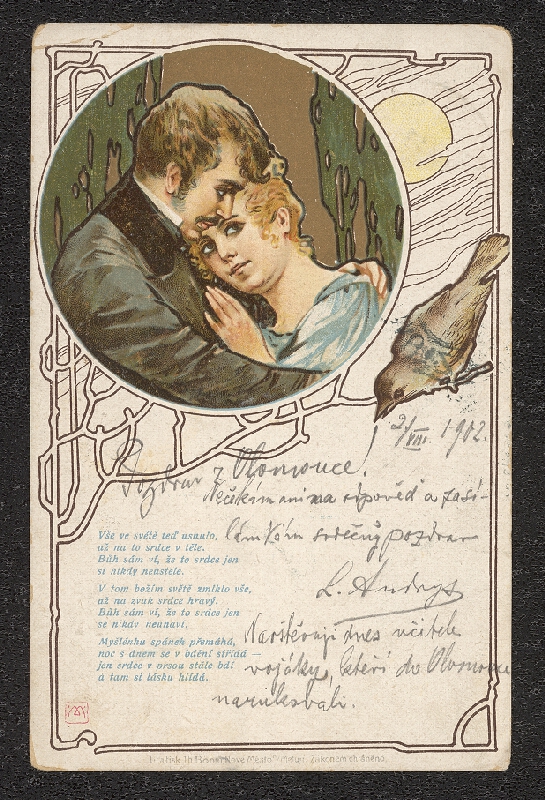 2/VIII. 1902.
Pozdrav z Olomouce!
Nečekám ani na odpověď a zasí-
lám Vám srdečný pozdrav
L.
Vše ve světě teď usnulo,
až na to srdce v těle.
Bůh sám ví, že to srdce jen
si nikdy neustele.
V tom božím světě zmlklo vše,
až na zvuk srdce hravý.
Bůh sám ví, že to srdce jen
se nikdy neunaví.
Myšlénku spánek přemáhá,
noc s dnem se v bdění střídá —
jen srdce v ňadrou stále bdí
a tam si lásku hlídá.
Navštěvuji dnes učitele
vojáky, kteří do Olomouce
narukovali.